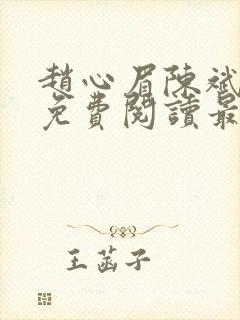 趙心眉陳斌
免費閱讀最
王菡子